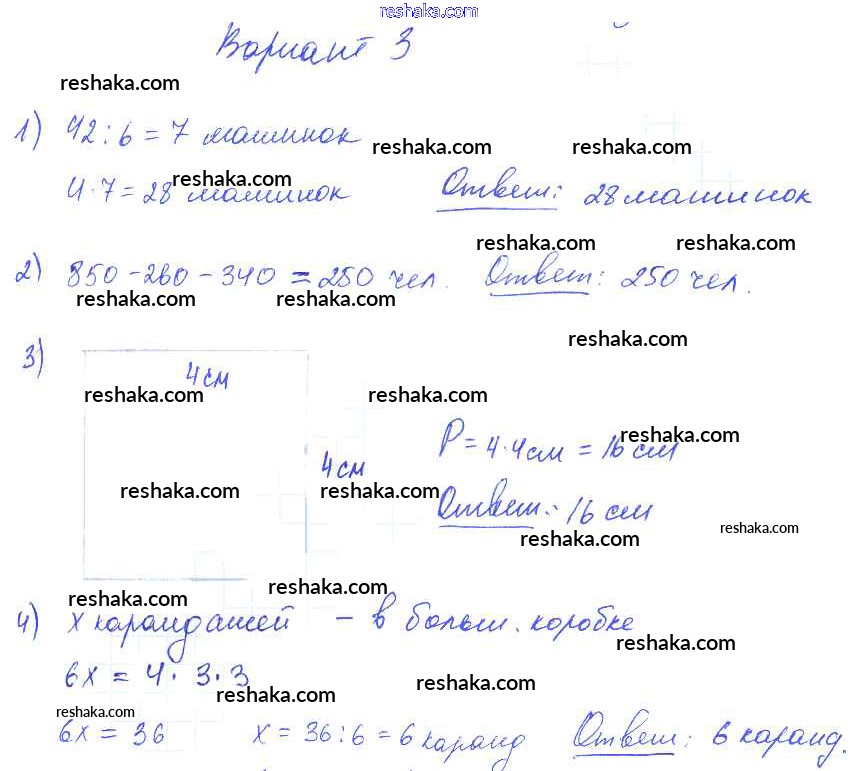 reshaka.com
Вариант 3
reshaka.com
1) 42 : 6 = 7 машинок
reshaka.com reshaka.com
4 · 7 = 28 машинок Ответ: 28 машинок
reshaka.com
reshaka.com reshaka.com
2) 850 - 260 - 340 = 250 чел. Ответ: 250 чел.
reshaka.com reshaka.com
reshaka.com
3)
4 см
reshaka.com reshaka.com
P = 4 · 4 см = 16 см
reshaka.com
4 см
reshaka.com reshaka.com
Ответ: 16 см
reshaka.com reshaka.com
reshaka.com
reshaka.com
4) x карандашей - в больш. коробке
reshaka.com
6x = 4 · 3 · 3
reshaka.com reshaka.com
reshaka.com
6x = 36 x = 36 : 6 = 6 каранд Ответ: 6 каранд.